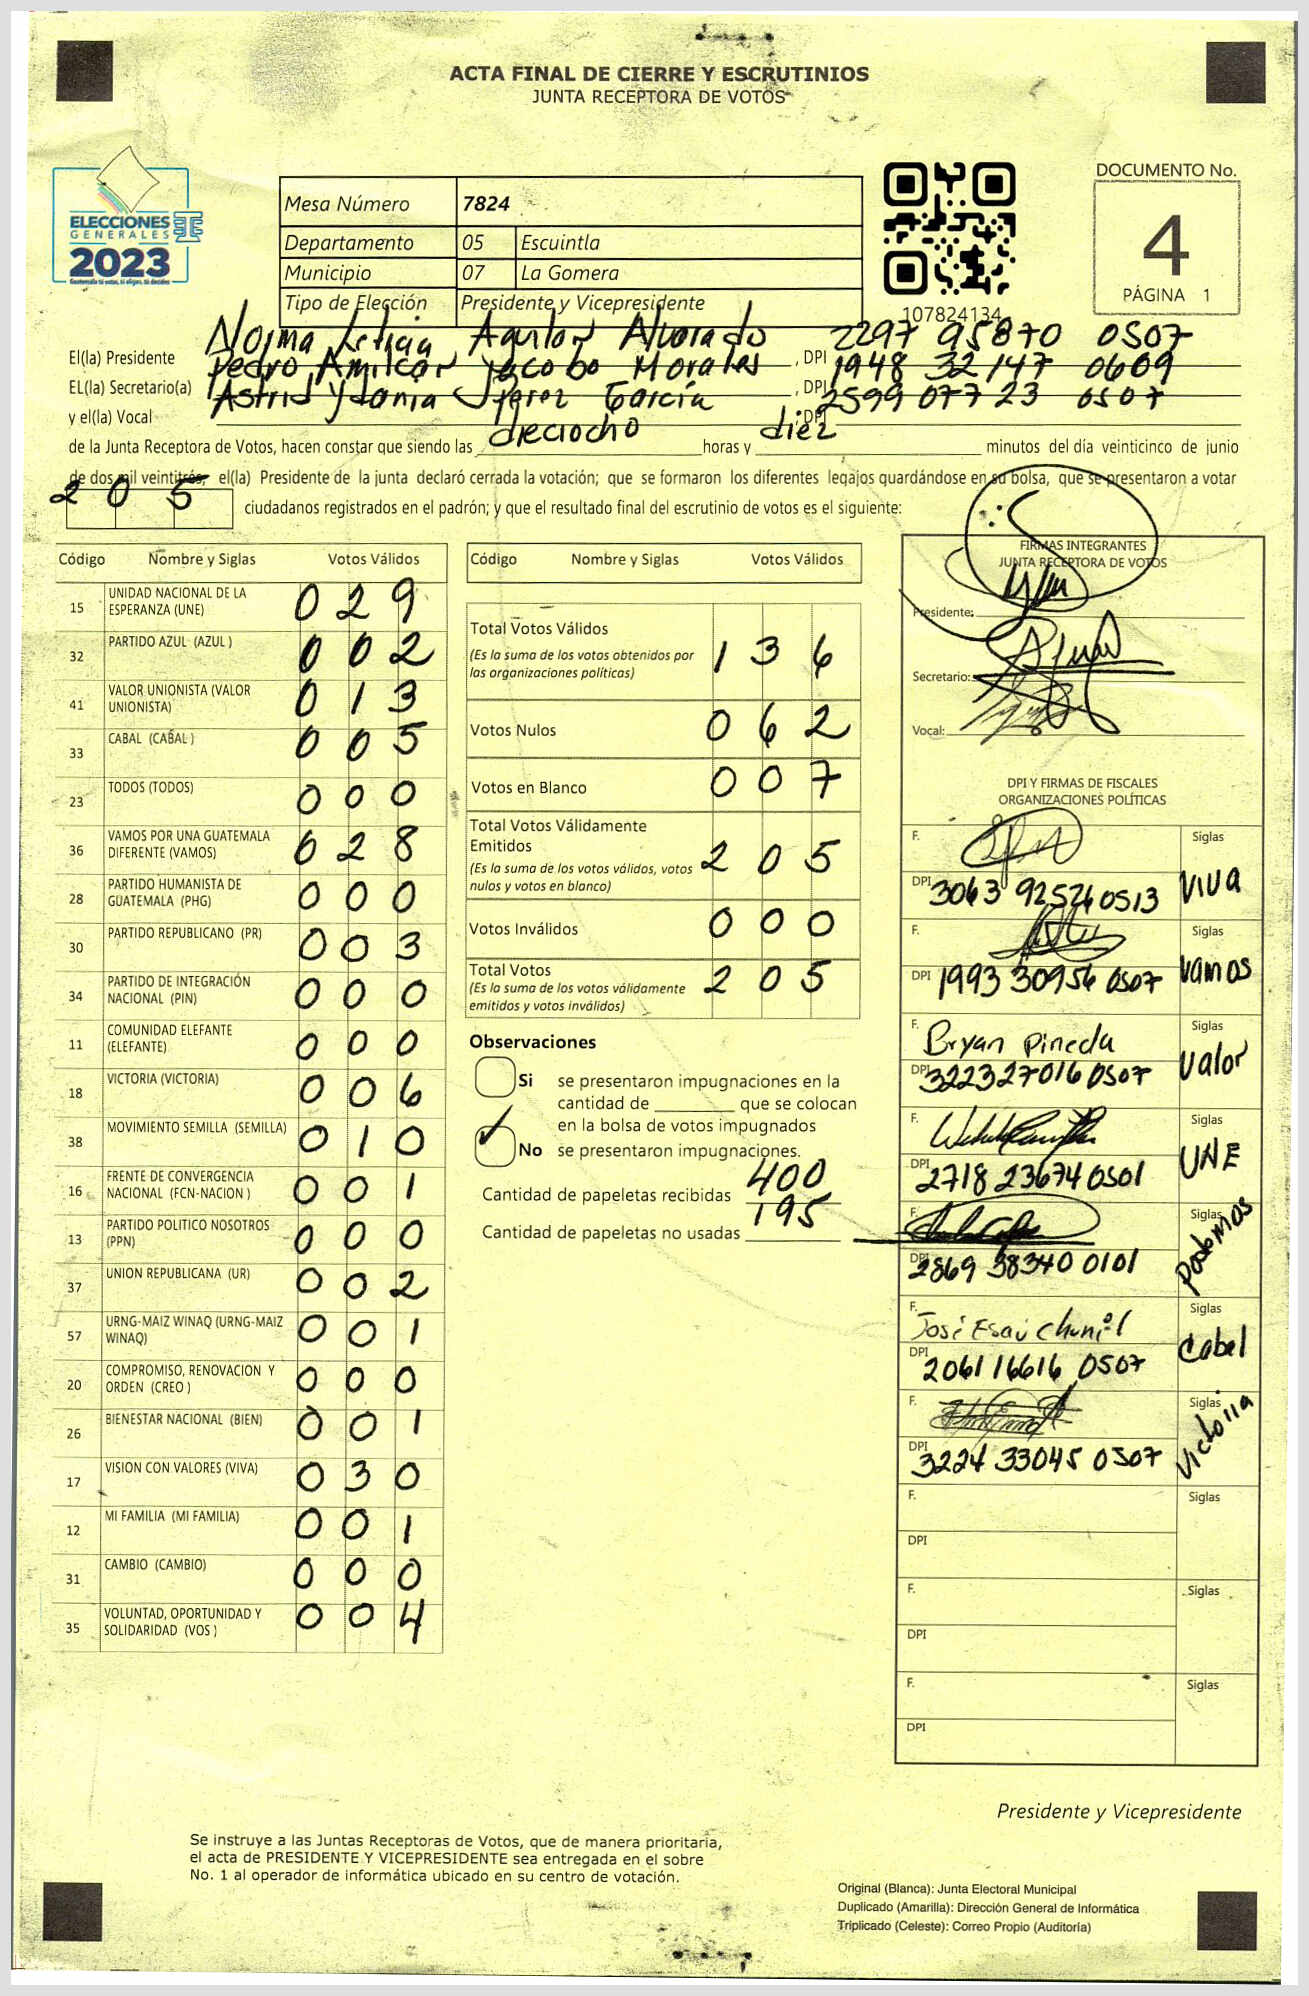 ACTA FINAL DE CIERRE Y ESCRUTINIOS
JUNTA RECEPTORA DE VOTOS
ELECCIONES
GENERALES
2023
Mesa Número 7824
Departamento 05 Escuintla
Municipio 07 La Gomera
Tipo de Elección Presidente y Vicepresidente
107824134
DOCUMENTO No.
4
PÁGINA 1
El(la) Presidente Norma Leticia Aguilar Alvarado , DPI 2297 95870 0507
EL(la) Secretario(a) Pedro Amilcar Jacobo Morales , DPI 1948 32147 0609
y el(la) Vocal Astrid Ydania Jperez García , DPI 2599 07723 0507
de la Junta Receptora de Votos, hacen constar que siendo las dieciocho horas y diez minutos del día veinticinco de junio
de dos mil veintitrés, el(la) Presidente de la junta declaró cerrada la votación; que se formaron los diferentes legajos guardándose en su bolsa, que se presentaron a votar
205 ciudadanos registrados en el padrón; y que el resultado final del escrutinio de votos es el siguiente:
Código Nombre y Siglas Votos Válidos
15 UNIDAD NACIONAL DE LA ESPERANZA (UNE) 029
32 PARTIDO AZUL (AZUL ) 002
41 VALOR UNIONISTA (VALOR UNIONISTA) 013
33 CABAL (CABAL ) 005
23 TODOS (TODOS) 000
36 VAMOS POR UNA GUATEMALA DIFERENTE (VAMOS) 028
28 PARTIDO HUMANISTA DE GUATEMALA (PHG) 000
30 PARTIDO REPUBLICANO (PR) 003
34 PARTIDO DE INTEGRACIÓN NACIONAL (PIN) 000
11 COMUNIDAD ELEFANTE (ELEFANTE) 000
18 VICTORIA (VICTORIA) 006
38 MOVIMIENTO SEMILLA (SEMILLA) 010
16 FRENTE DE CONVERGENCIA NACIONAL (FCN-NACION ) 001
13 PARTIDO POLITICO NOSOTROS (PPN) 000
37 UNION REPUBLICANA (UR) 002
57 URNG-MAIZ WINAQ (URNG-MAIZ WINAQ) 001
20 COMPROMISO, RENOVACION Y ORDEN (CREO ) 000
26 BIENESTAR NACIONAL (BIEN) 001
17 VISION CON VALORES (VIVA) 030
12 MI FAMILIA (MI FAMILIA) 001
31 CAMBIO (CAMBIO) 000
35 VOLUNTAD, OPORTUNIDAD Y SOLIDARIDAD (VOS ) 004
Código Nombre y Siglas Votos Válidos
Total Votos Válidos 136
(Es la suma de los votos obtenidos por
las organizaciones políticas)
Votos Nulos 062
Votos en Blanco 007
Total Votos Válidamente
Emitidos 205
(Es la suma de los votos válidos, votos
nulos y votos en blanco)
Votos Inválidos 000
Total Votos 205
(Es la suma de los votos válidamente
emitidos y votos inválidos)
Observaciones
Si se presentaron impugnaciones en la
cantidad de ________ que se colocan
en la bolsa de votos impugnados
✓ No se presentaron impugnaciones.
Cantidad de papeletas recibidas 400
Cantidad de papeletas no usadas 195
FIRMAS INTEGRANTES
JUNTA RECEPTORA DE VOTOS
Presidente:
Secretario:
Vocal:
DPI Y FIRMAS DE FISCALES
ORGANIZACIONES POLÍTICAS
F. Siglas
DPI 3063 92526 0513 VIVA
F. Siglas
DPI 1993 30956 0507 Vamos
F. Bryan Pineda Siglas
DPI 3223 27016 0507 Valor
F. Siglas
DPI 2718 23674 0501 UNE
F. Siglas
DPI 2869 38340 0101 Podemos
F. José Esaú Siglas
DPI 2061 16616 0507 Cabel
F. Siglas
DPI 3224 33045 0507 Victoria
F. Siglas
DPI
F. Siglas
DPI
F. Siglas
DPI
Presidente y Vicepresidente
Se instruye a las Juntas Receptoras de Votos, que de manera prioritaria,
el acta de PRESIDENTE Y VICEPRESIDENTE sea entregada en el sobre
No. 1 al operador de informática ubicado en su centro de votación.
Original (Blanca): Junta Electoral Municipal
Duplicado (Amarilla): Dirección General de Informática
Triplicado (Celeste): Correo Propio (Auditoría)